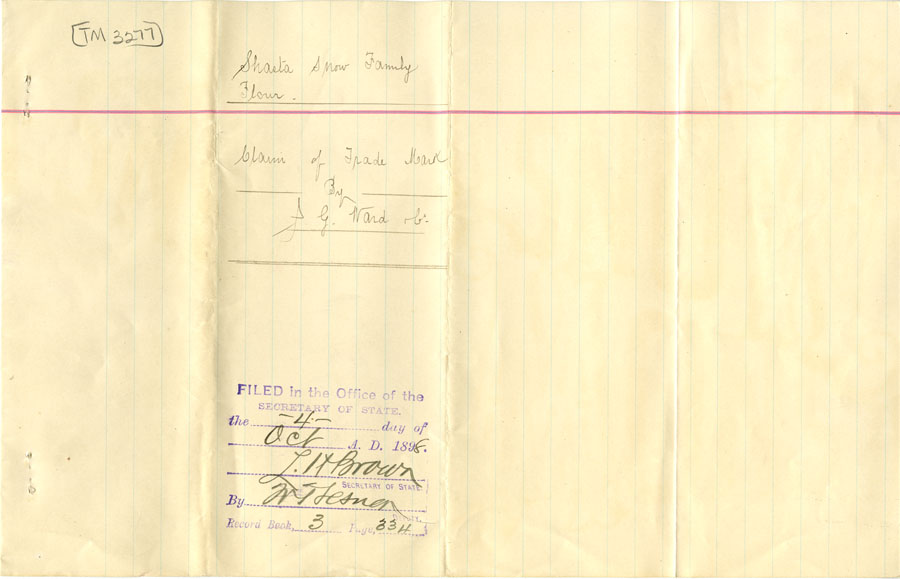 TM 3277
Shasta Snow Family
Flour.
Claim of Trade Mark
By
J G. Ward & Co.
FILED in the Office of the
SECRETARY OF STATE.
the -4- day of
Oct A. D. 1898.
L. H Brown
SECRETARY OF STATE
By
Deputy.
Record Book, 3 Page, 334